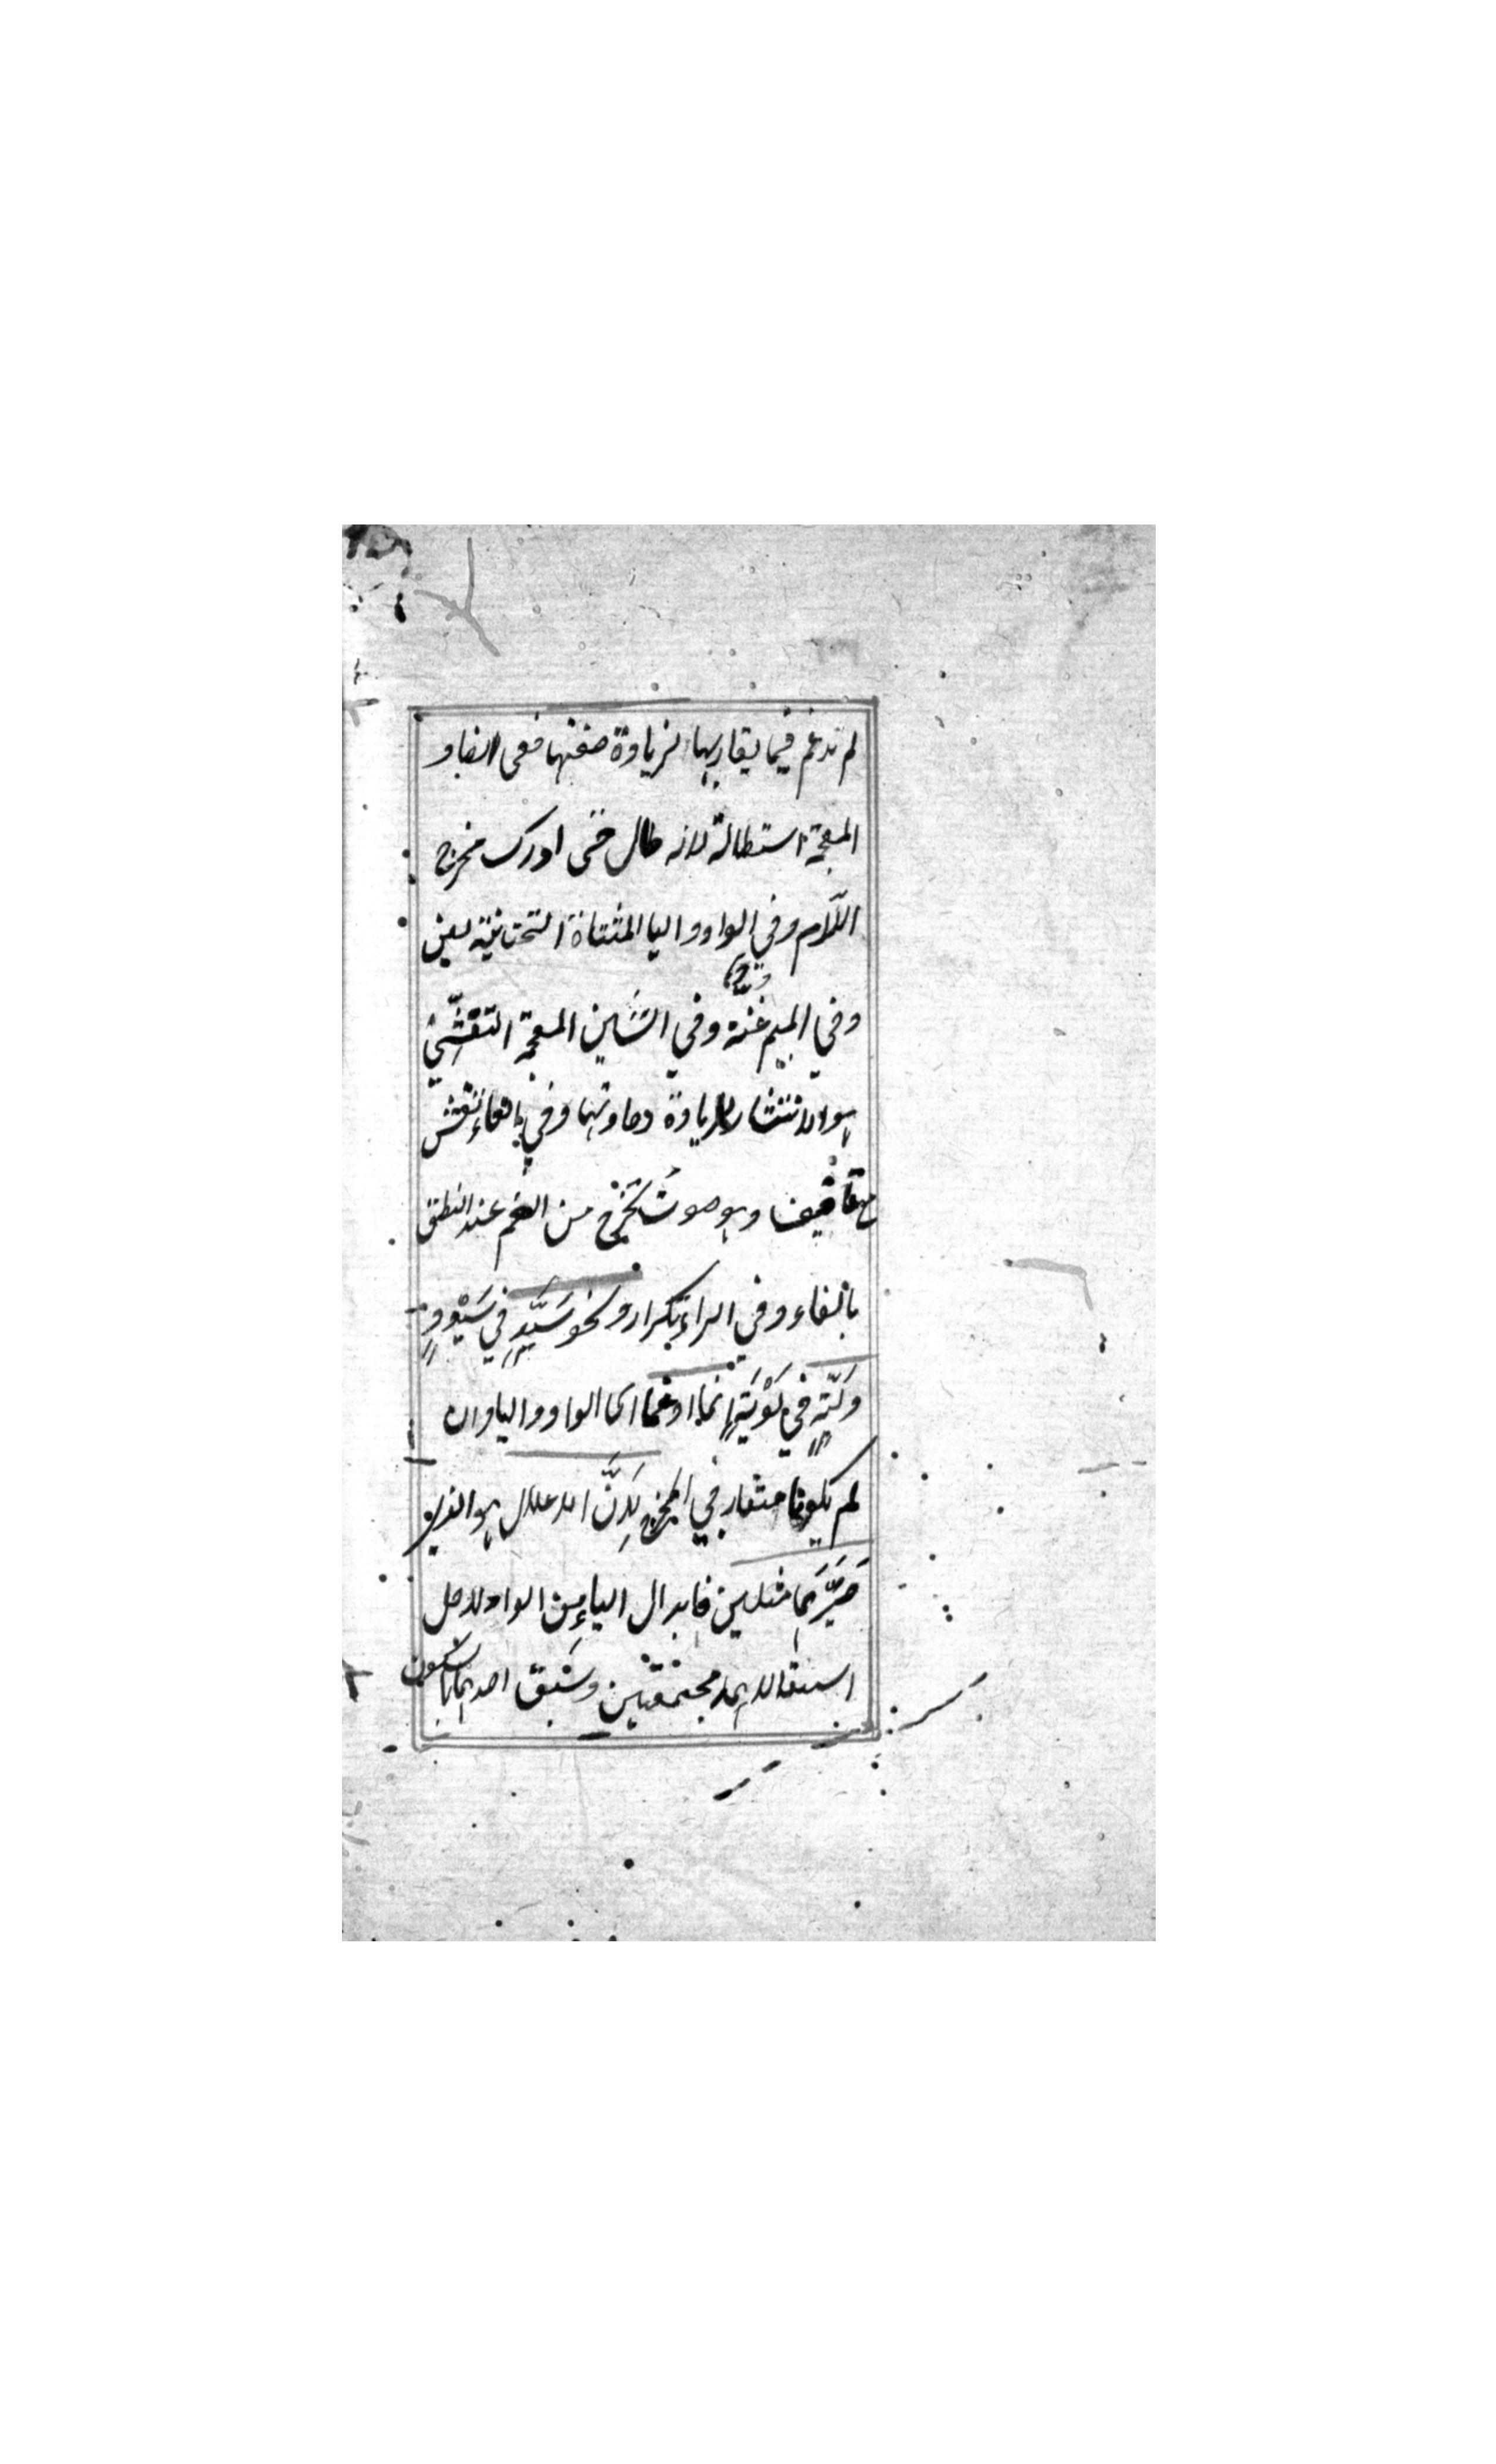 لم تدغم فيما يقاربها لزيادة صفتها ففى الضاد
المعجمة استطالة لانه طال حتى ادرك مخرج
اللام وفي الواو واليا المثناة التحتانية لين
وفي الميم غنة وفي الشَين المعجمة التفشّي
هو الانتشار لزيادة رخاوتها وفي الفاء تفش
مع تافيف وهو صوت يخرج من الفم عند النطق
بالفاء وفى الراء تكرار ونحو سَيّدٍ في سَيْوِدٍ
وَليّةٍ في لَوْيَةٍ انما ادغما اى الواو واليا وان
لم يكونا متقارب في المخرج لِاَنَّ الاعلال هو الذي
صَيَّرَهما مثلين فابدال الياء من الواو لاجل
استثقالهما مجتمعتين وسَبق احديهما بالسكون